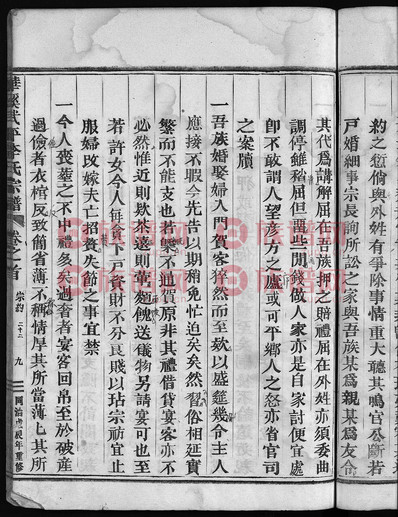 約之愆倘與外姓有爭除事情重大聽其鳴官公斷若
戸婚細事宗長詢所訟之家與吾族某爲親某爲友合
其代爲講解屈在吾族押之賠禮屈在外姓亦須委曲
調停雖稍屈但罷些閒錢做人家亦是自家討便宜處
卽不敢謂人望彦方之廬或可平鄉人之怨亦省官司
之案牘
一吾族婚娶婦入門賀客猝然而至欵以盛筵幾令主人
應接不暇今先告以期稍免忙迫矣然習俗相延實
繁而不能支也若槩不通賀原非其禮借貸宴客亦不
必然惟近則欵茶遠則萬麺餽送儀物另請宴可也至
若許女令人無貪上戸資財不分良賤以玷宗祊宜止
服婦改嫁夫亡招贅失節之事宜禁
一今人喪葬之不中禮多矣過奢者宴客回帛至於破產
過儉者衣棺反致簡省薄不稱情厚其所當薄上其所
華溪武平李氏宗譜
卷之首
宗約
二十三
九
同治庚視年重修
族譜网